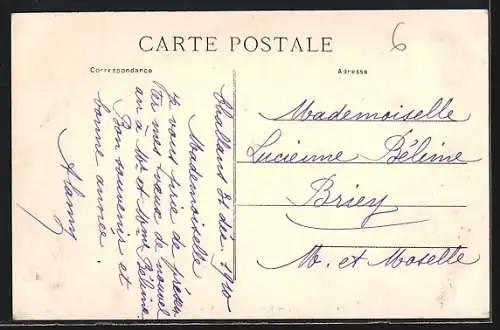 6
CARTE POSTALE
Correspondance
Adresse
31 déc. 1910
Mademoiselle
Je vous prie de présen
ter mes vœux de nouvel
an à Mr et Mme Béline.
Bon souvenir et
bonne année.
Mademoiselle
Lucienne Béline
Briey
M. et Moselle